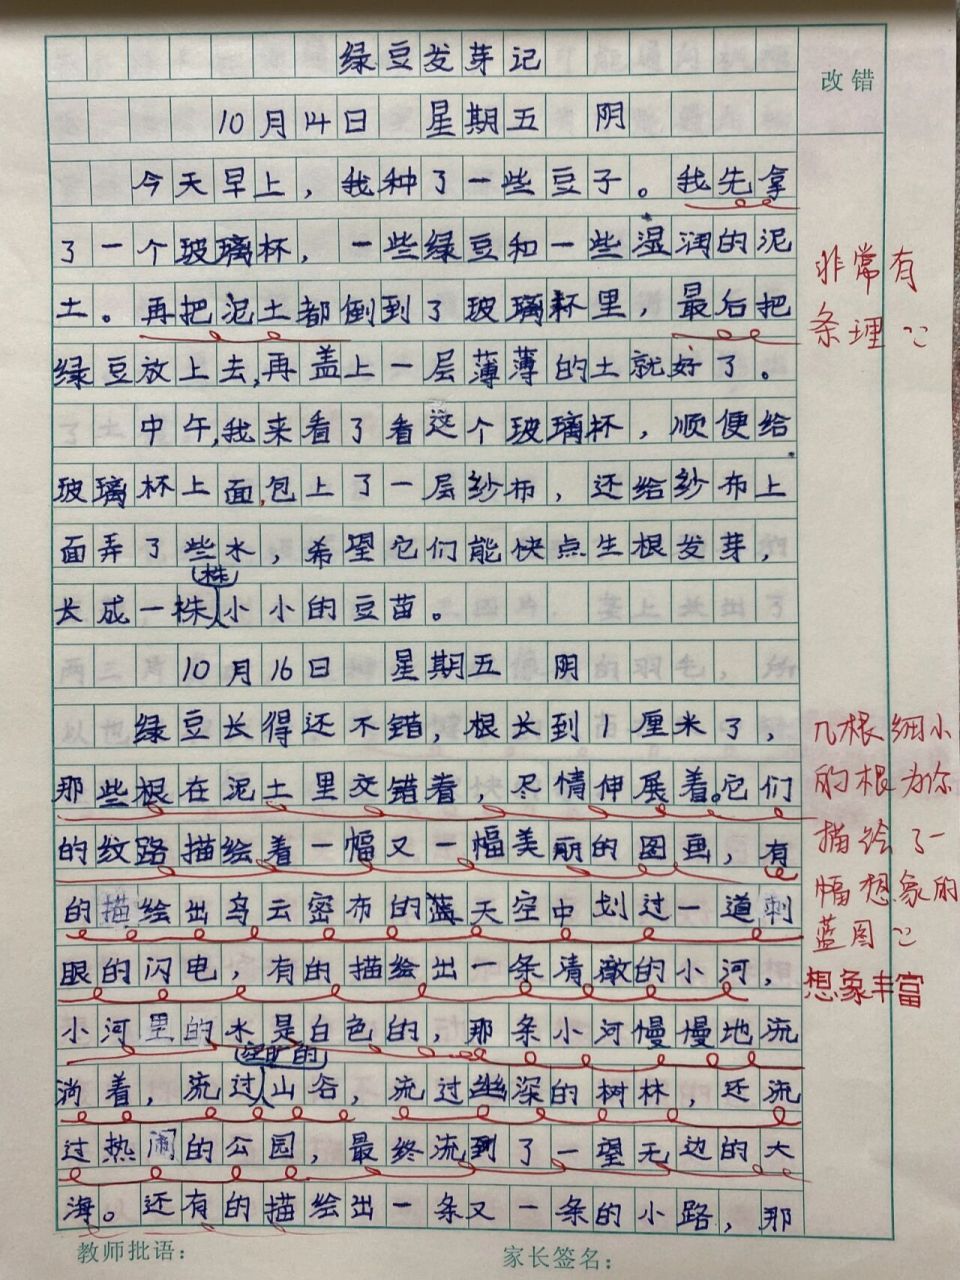 绿豆发芽记
改错
10月14日 星期五 阴
今天早上，我种了一些豆子。我先拿
了一个玻璃杯，一些绿豆和一些湿润的泥
土。再把泥土都倒到了玻璃杯里，最后把
非常有
条理
绿豆放上去，再盖上一层薄薄的土就好了。
中午，我来看了看这个玻璃杯，顺便给
玻璃杯上面，包上了一层纱布，还给纱布上
面弄了些水，希望它们能快点生根发芽，
长成一株株小小的豆苗。
10月16日 星期五 阴
绿豆长得还不错，根长到1厘米了，
那些根在泥土里交错着，尽情伸展着。它们
的纹路描绘着一幅又一幅美丽的图画，有
的描绘出乌云密布的蓝天空中划过一道刺
眼的闪电，有的描绘出一条清澈的小河，
小河里的水是白色的，那条小河慢慢地流
淌着，流过空旷的山谷，流过幽深的树林，还流
过热闹的公园，最终流到了一望无边的大
海。还有的描绘出一条又一条的小路，那
几根细小
的根为你
描绘了一
幅想象的
蓝图
想象丰富
教师批语： 家长签名：